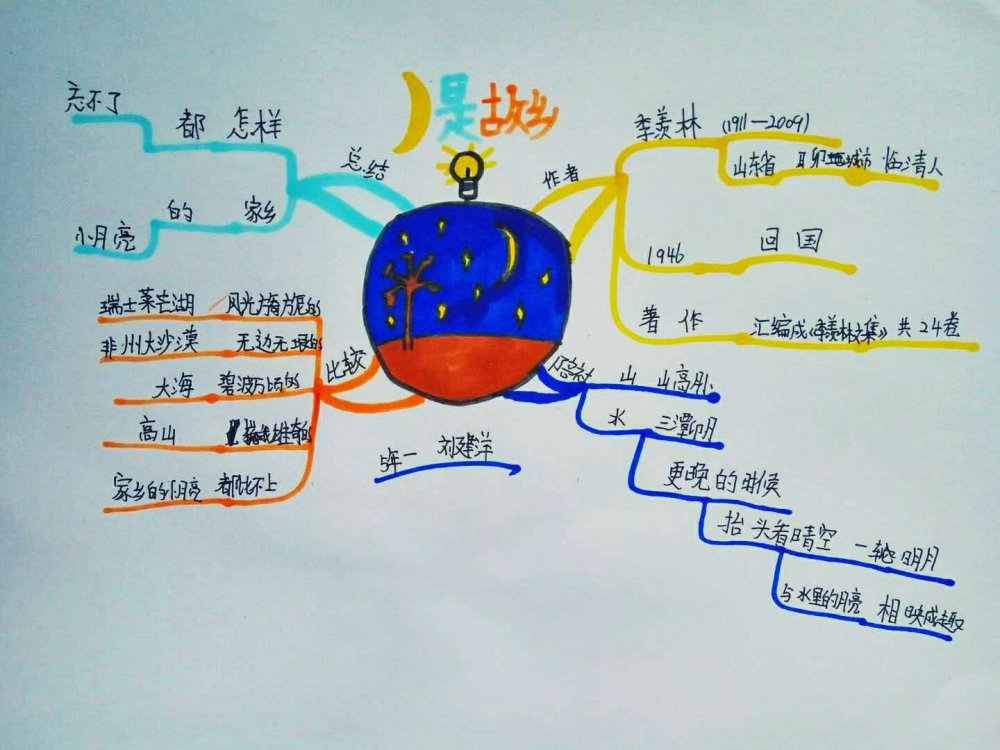 是故乡
总结
都 怎样
忘不了
的 家乡
小月亮
作者
季羡林 (1911—2009)
山东省 聊城市 临清人
1946 回国
著作 汇编成《季羡林文集》共24卷
比较
瑞士莱芒湖 风光旖旎的
非州大沙漠 无边无垠的
大海 碧波万顷的
高山 巍峨雄奇的
家乡的小月亮 都比不上
山
水
更晚的时候
抬头看晴空 一轮明月
与水里的月亮 相映成趣
5年一 刘建洋